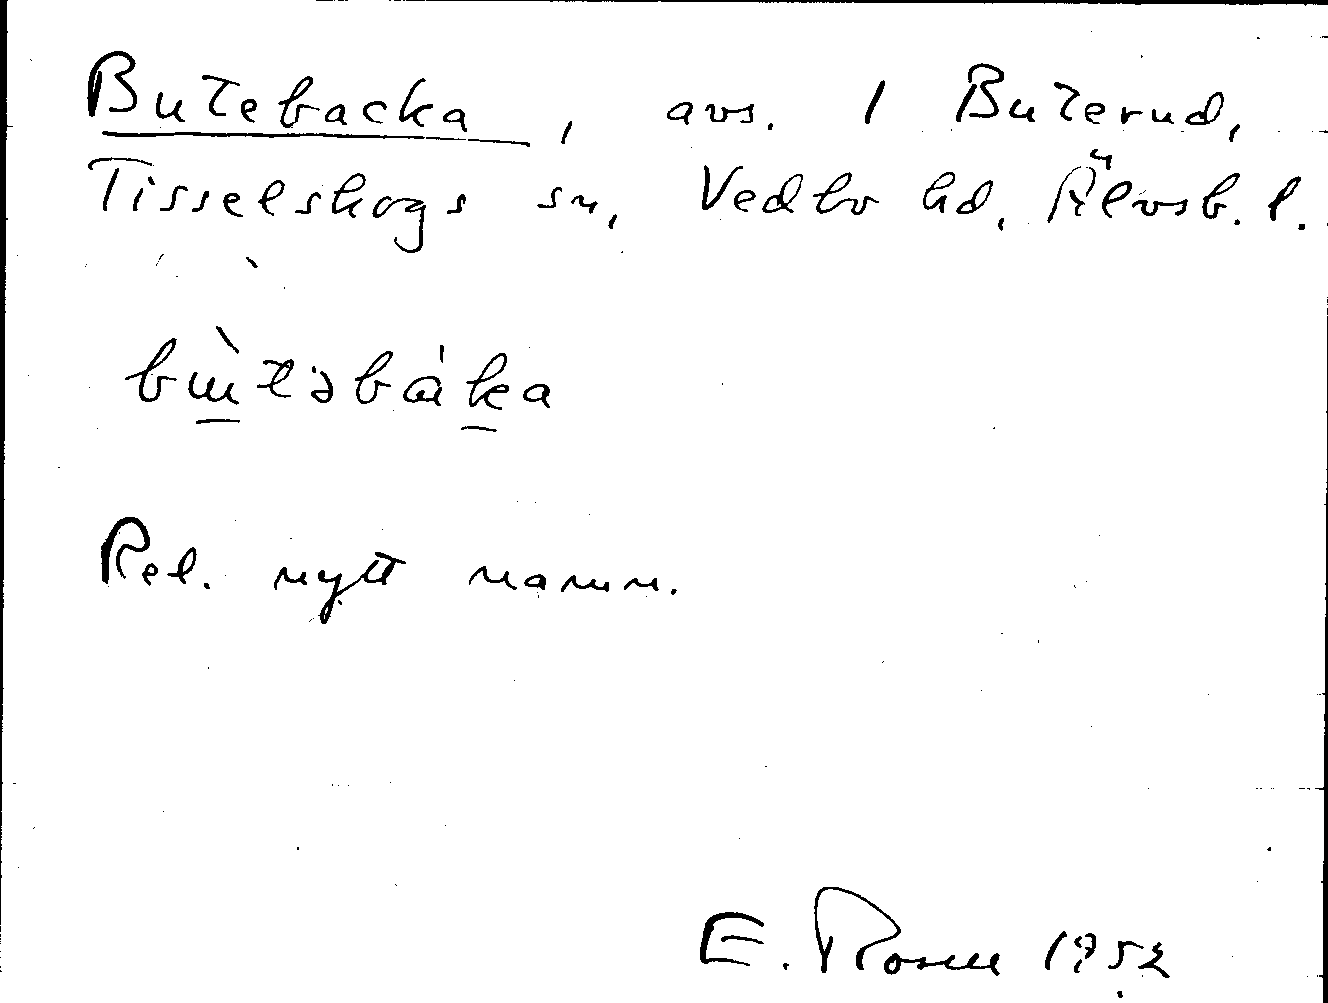 Butebacka, avs. 1 Buterud,
Tisselskogs sn, Vedbo hd, Älvsb. l.
bɯ̀təbáka
Rel. nytt namn.
E. Rosell 1952